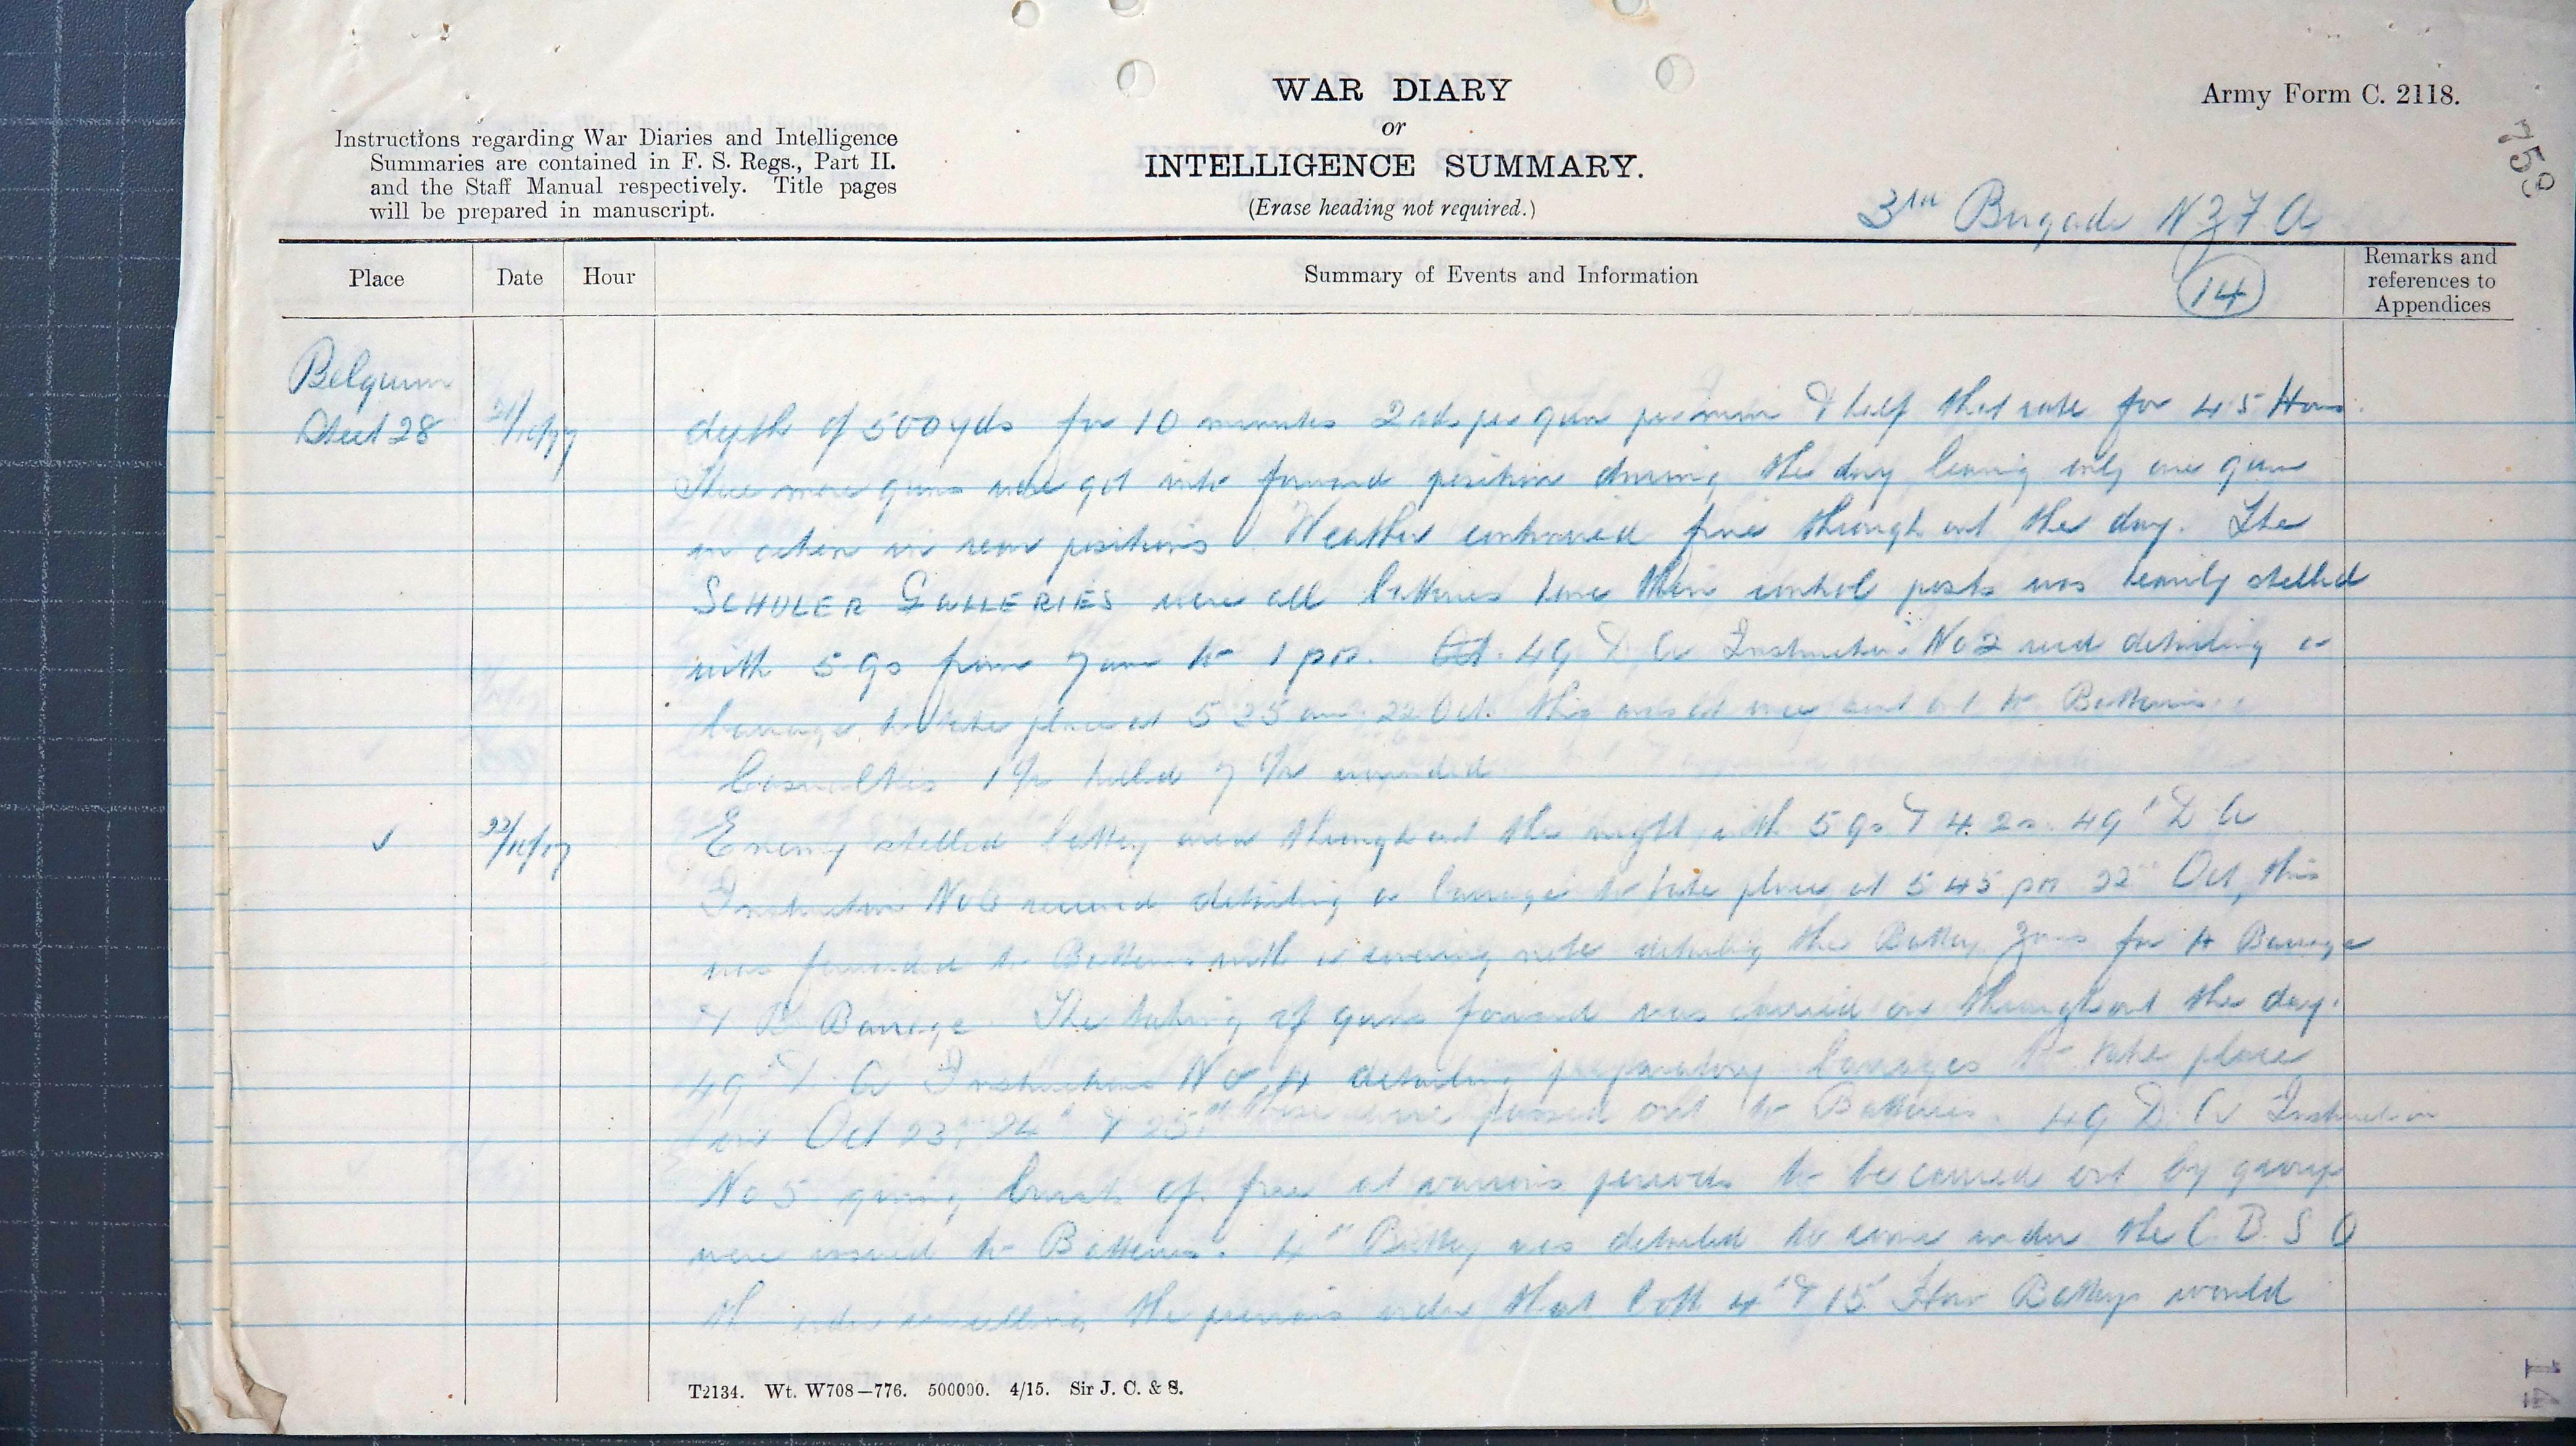 WAR DIARY
or
INTELLIGENCE SUMMARY.
(Erase heading not required.)
Army Form C. 2118.
759
Instructions regarding War Diaries and Intelligence
Summaries are contained in F. S. Regs., Part II.
and the Staff Manual respectively. Title pages
will be prepared in manuscript.
3rd Brigade N Z F A
14
Place
Date
Hour
Summary of Events and Information
Remarks and
references to
Appendices
Belgium
Sheet 28
21/10/17
depth of 500 yds for 10 minutes 2 rds per gun per min & half that rate for 45 Hows.
Three more guns were got into forward position during the day leaving only one gun
in action in rear positions. Weather continued fine throughout the day. The
SCHULER GALLERIES were all batteries have their control posts was heavily shelled
with 5 9s from 7 am to 1 pm. 49 D. A Instruction No 2 recd detailing a
barrage to take place at 5 35 am 22 Oct. this was at once sent out to Batteries
Casualties 1 O/R killed 7 O/R wounded
22/10/17
Enemy shelled battery area throughout the night with 5 9s & 4.2s. 49th D A
Instruction No 3 received detailing a barrage to take place at 5 45 pm 22nd Oct, this
was forwarded to Batteries with a covering note detailing the Battery Zones for A Barrage
& B Barrage. The taking of guns forward was carried on throughout the day.
49th D A Instructions No 4 detailing preparatory barrages to take place
on Oct 23rd, 24th & 25th these were passed out to Batteries. 49 D. A Instruction
No 5 giving bursts of fire at various periods to be carried out by group
were issued to Batteries. 4th Battery was detailed to come under the C. B. S O
order cancelling the previous order that both 4th & 15th How Batterys would
T2134. Wt. W708—776. 500000. 4/15. Sir J. C. & S.
14